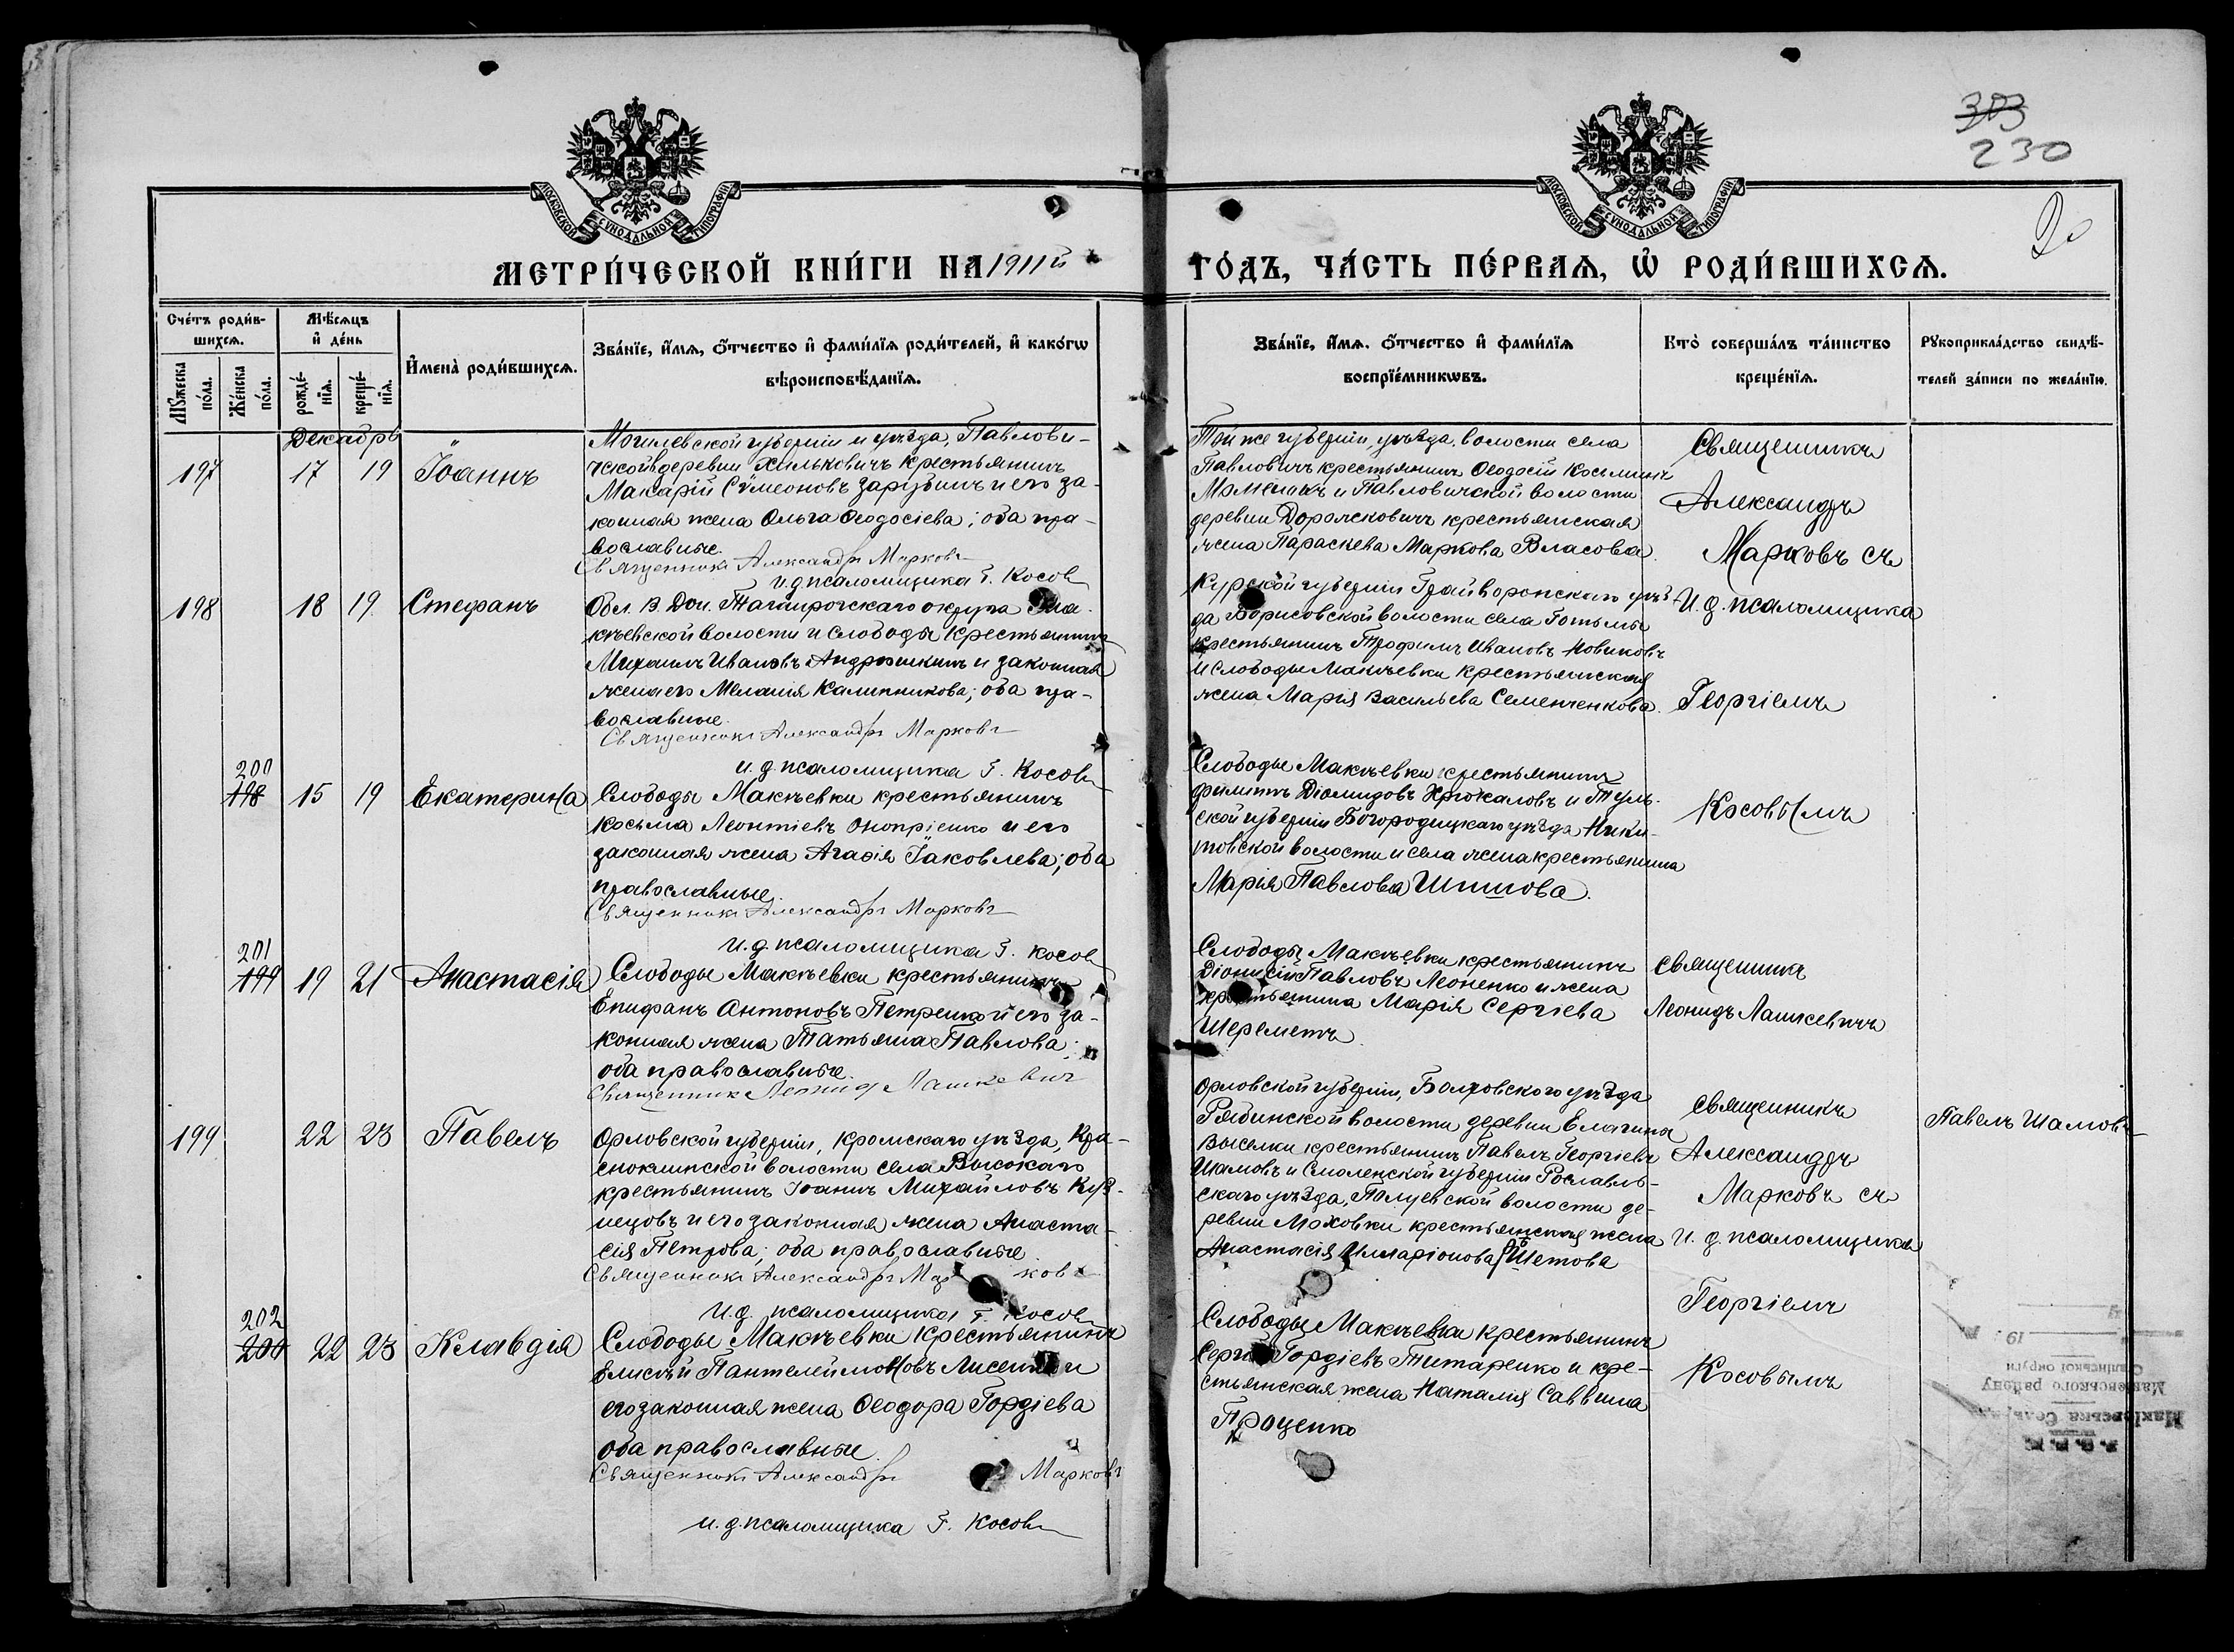 303
230
20
МОСКОВСКОЙ СѴНОДАЛЬНОЙ ТИПОГРАФІИ
МОСКОВСКОЙ СѴНОДАЛЬНОЙ ТИПОГРАФІИ
МЕТРИ́ЧЕСКОЙ КНИ́ГИ НА 1911й
ГО́ДЪ, ЧА́СТЬ ПЕ́РВАѦ, Ѡ҆ РОДИ́ВШИХСѦ.
Сче́тъ роди́в-
шихсѧ.
Мѣ́сѧцъ
и҆ де́нь
Мꙋ́жеска
по́ла.
Же́нска
по́ла.
рожде́-
нїѧ.
креще́-
нїѧ.
И҆мена̀ роди́вшихсѧ.
Зва́нїе, и҆́мѧ, ѻ҆́тчество и҆ фами́лїѧ роди́телей, и҆ како́гѡ
вѣроисповѣ́данїѧ.
Зва́нїе, и҆́мѧ, ѻ҆́тчество и҆ фами́лїѧ
воспрїе́мникѡвъ.
Кто̀ соверша́лъ та́инство
креще́нїѧ.
Рꙋкоприкла́дство свидѣ́-
телей за́писи по жела́нїю.
Декабрь
197 17 19 Іоаннъ
Могилевской губерніи и уѣзда, Павлови-
чской деревни Хильковичъ крестьянинъ
Макарій Сѵмеоновъ Зарубинъ и его за-
конная жена Ольга Ѳеодосіева; оба пра-
вославные.
Священникъ Александръ Марковъ
и. д. псаломщика Г. Косовъ
Той же губерніи, уѣзда, волости села
Павловичъ крестьянинъ Ѳеодосій Косьминъ
и Павловичской волости
деревни крестьянская
жена Параскева Маркова Власова.
Священникъ
Александръ
Марковъ съ
И. д. псаломщика
Георгіемъ
Косовымъ
198 18 19 Стефанъ
Обл. В. Дон. Таганрогскаго округа Ма-
кѣевской волости и слободы крестьянинъ
Михаилъ Ивановъ Андрюшкинъ и законная
жена его Меланія Калинникова; оба пра-
вославные.
Священникъ Александръ Марковъ
и. д. псаломщика Г. Косовъ
Курской губерніи Грайворонскаго уѣз-
да Борисовской волости села Готьмы
крестьянинъ Трофимъ Ивановъ Новиковъ
и слободы Макѣевки крестьянская
жена Марія Васильева Семенченкова.
200
198 15 19 Екатерина
Слободы Макѣевки крестьянинъ
Косьма Леонтіевъ Оноприенко и его
законная жена Агаѳія Іаковлева; оба
православные.
Священникъ Александръ Марковъ
и. д. псаломщика Г. Косовъ
Слободы Макѣевки крестьянинъ
Діомидовъ и Туль-
ской губерніи Богородицкаго уѣзда Ники-
товской волости и села жена крестьянина
Марія Павлова Шишова.
201
199 19 21 Анастасія
Слободы Макѣевки крестьянинъ
Епифанъ Антоновъ Петренко и его за-
конная жена Татьяна Павлова;
оба православные.
Священникъ Леонидъ Лашкевичъ
Слободы Макѣевки крестьянинъ
Діонисій Павловъ Леоненко и жена
крестьянина Марія Сергіева
Шереметъ.
Священникъ
Леонидъ Лашкевичъ
199 22 23 Павелъ
Орловской губерніи, Кромскаго уѣзда, Кра-
сноклинской волости села Высокаго
крестьянинъ Іоаннъ Михайловъ Куз-
нецовъ и его законная жена Анаста-
сія Петрова; оба православные
Священникъ Александръ Марковъ
И. д. псаломщика Г. Косовъ
Орловской губерніи, Болховского уѣзда
Рябинской волости деревни Елагина
Выселки крестьянинъ Павелъ Георгіевъ
Шамовъ и Смоленской губерніи Рославль-
скаго уѣзда, волости де-
ревни Моховки крестьянская жена
Анастасія Илларіонова Шетова
Священникъ
Александръ
Марковъ съ
и. д. псаломщика
Георгіемъ
Косовымъ
Павелъ Шамовъ
202
200 22 23 Клавдія
Слободы Макѣевки крестьянинъ
Елисѣй Пантелеймоновъ Лисенко и
его законная жена Ѳеодора Гордіева
оба православные.
Священникъ Александръ Марковъ
и. д. псаломщика Г. Косовъ
Слободы Макѣевки крестьянинъ
Сергій Гордіевъ Титаренко и кре-
стьянская жена Наталія Саввина
Проценко
19
Сталінської округи
Макіївського району
Макіївська Сель.рада